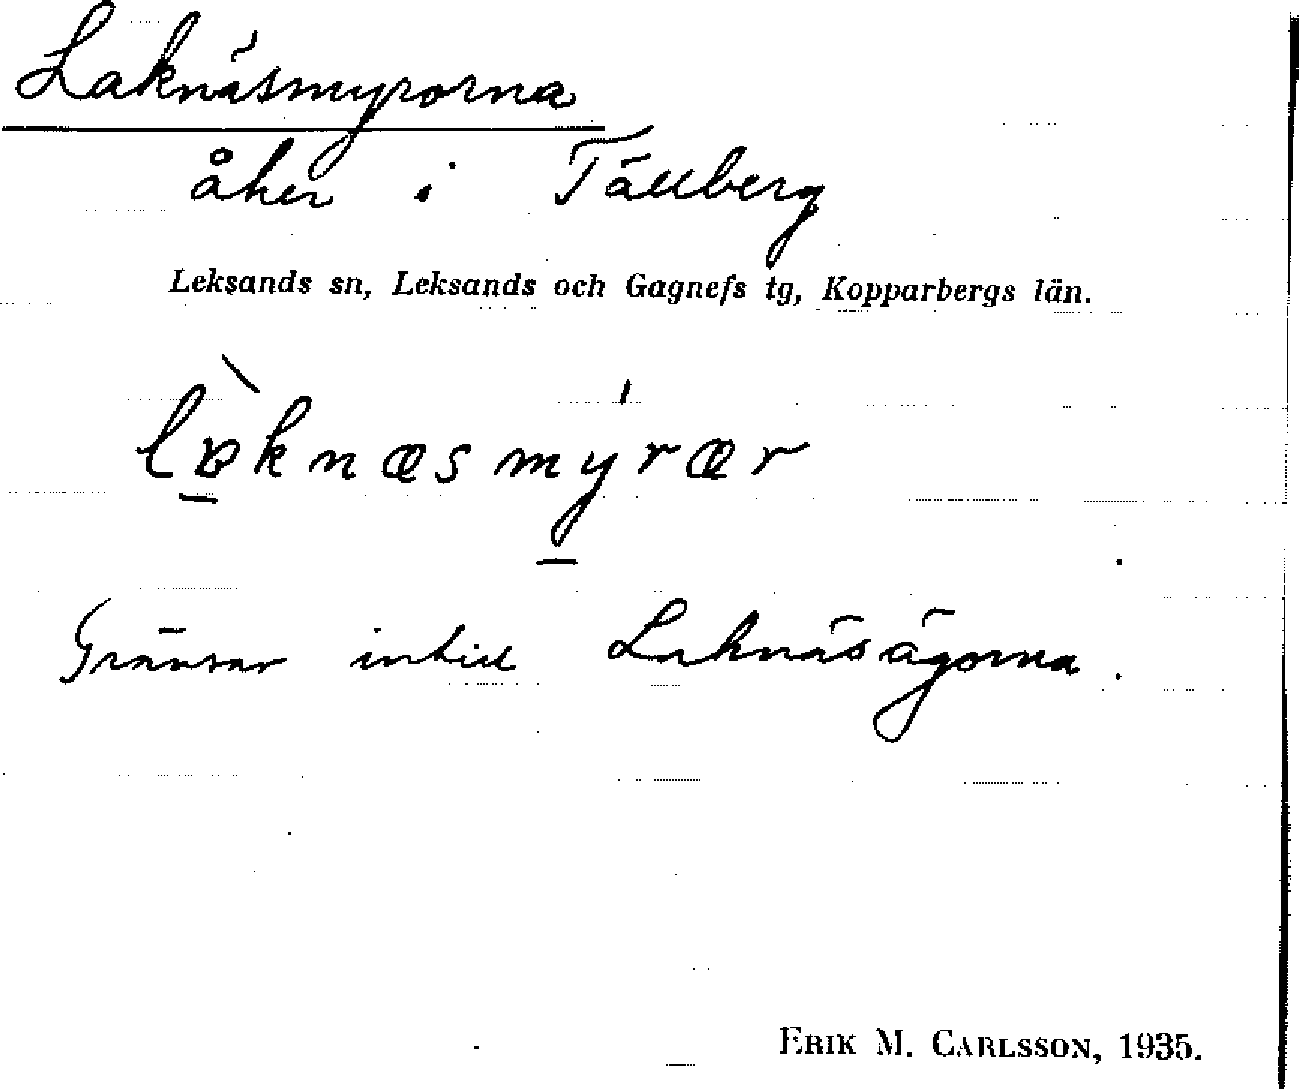 Laknäsmyrorna
åker i Tällberg
Leksands sn, Leksands och Gagnefs tg, Kopparbergs län.
lɒ̀knæsmy̍rær
Gränsar intill Laknäsägorna.
ERIK M. CARLSSON, 1935.